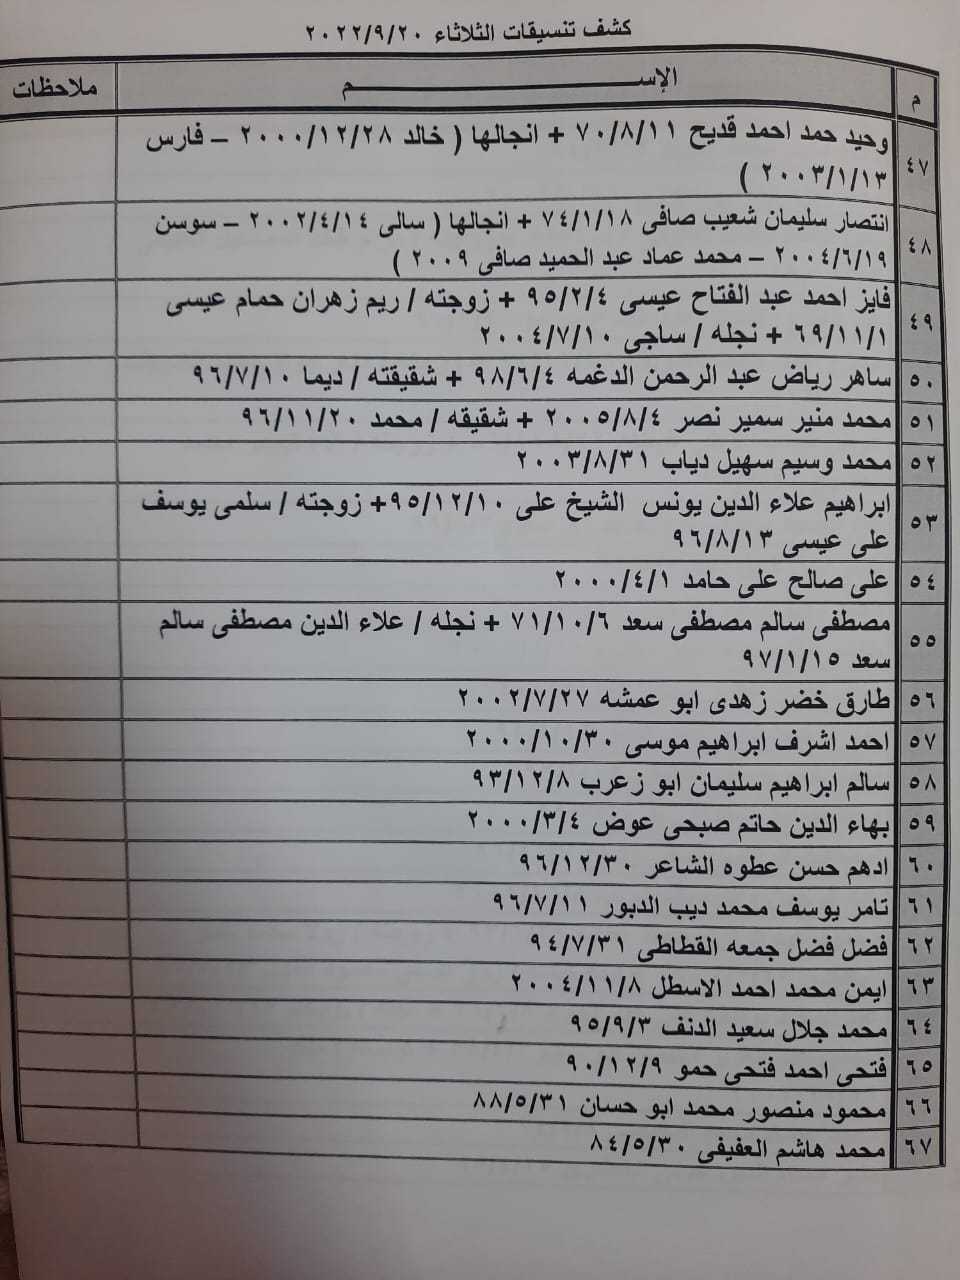 كشف تنسيقات الثلاثاء ٢٠٢٢/٩/٢٠
م الإســـــــــــــــــــم ملاحظات
٤٧ وحيد حمد احمد قديح ٧٠/٨/١١ + انجالها ( خالد ٢٠٠٠/١٢/٢٨ – فارس
٢٠٠٣/١/١٣ )
٤٨ انتصار سليمان شعيب صافى ٧٤/١/١٨ + انجالها ( سالى ٢٠٠٢/٤/١٤ – سوسن
٢٠٠٤/٦/١٩ – محمد عماد عبد الحميد صافى ٢٠٠٩ )
٤٩ فايز احمد عبد الفتاح عيسى ٩٥/٢/٤ + زوجته / ريم زهران حمام عيسى
٦٩/١١/١ + نجله / ساجى ٢٠٠٤/٧/١٠
٥٠ ساهر رياض عبد الرحمن الدغمه ٩٨/٦/٤ + شقيقته / ديما ٩٦/٧/١٠
٥١ محمد منير سمير نصر ٢٠٠٥/٨/٤ + شقيقه / محمد ٩٦/١١/٢٠
٥٢ محمد وسيم سهيل دياب ٢٠٠٣/٨/٣١
٥٣ ابراهيم علاء الدين يونس الشيخ على ٩٥/١٢/١٠+ زوجته / سلمى يوسف
على عيسى ٩٦/٨/١٣
٥٤ على صالح على حامد ٢٠٠٠/٤/١
٥٥ مصطفى سالم مصطفى سعد ٧١/١٠/٦ + نجله / علاء الدين مصطفى سالم
سعد ٩٧/١/١٥
٥٦ طارق خضر زهدى ابو عمشه ٢٠٠٢/٧/٢٧
٥٧ احمد اشرف ابراهيم موسى ٢٠٠٠/١٠/٣٠
٥٨ سالم ابراهيم سليمان ابو زعرب ٩٣/١٢/٨
٥٩ بهاء الدين حاتم صبحى عوض ٢٠٠٠/٣/٤
٦٠ ادهم حسن عطوه الشاعر ٩٦/١٢/٣٠
٦١ تامر يوسف محمد ديب الدبور ٩٦/٧/١١
٦٢ فضل فضل جمعه القطاطى ٩٤/٧/٣١
٦٣ ايمن محمد احمد الاسطل ٢٠٠٤/١١/٨
٦٤ محمد جلال سعيد الدنف ٩٥/٩/٣
٦٥ فتحى احمد فتحى حمو ٩٠/١٢/٩
٦٦ محمود منصور محمد ابو حسان ٨٨/٥/٣١
٦٧ محمد هاشم العفيفى ٨٤/٥/٣٠